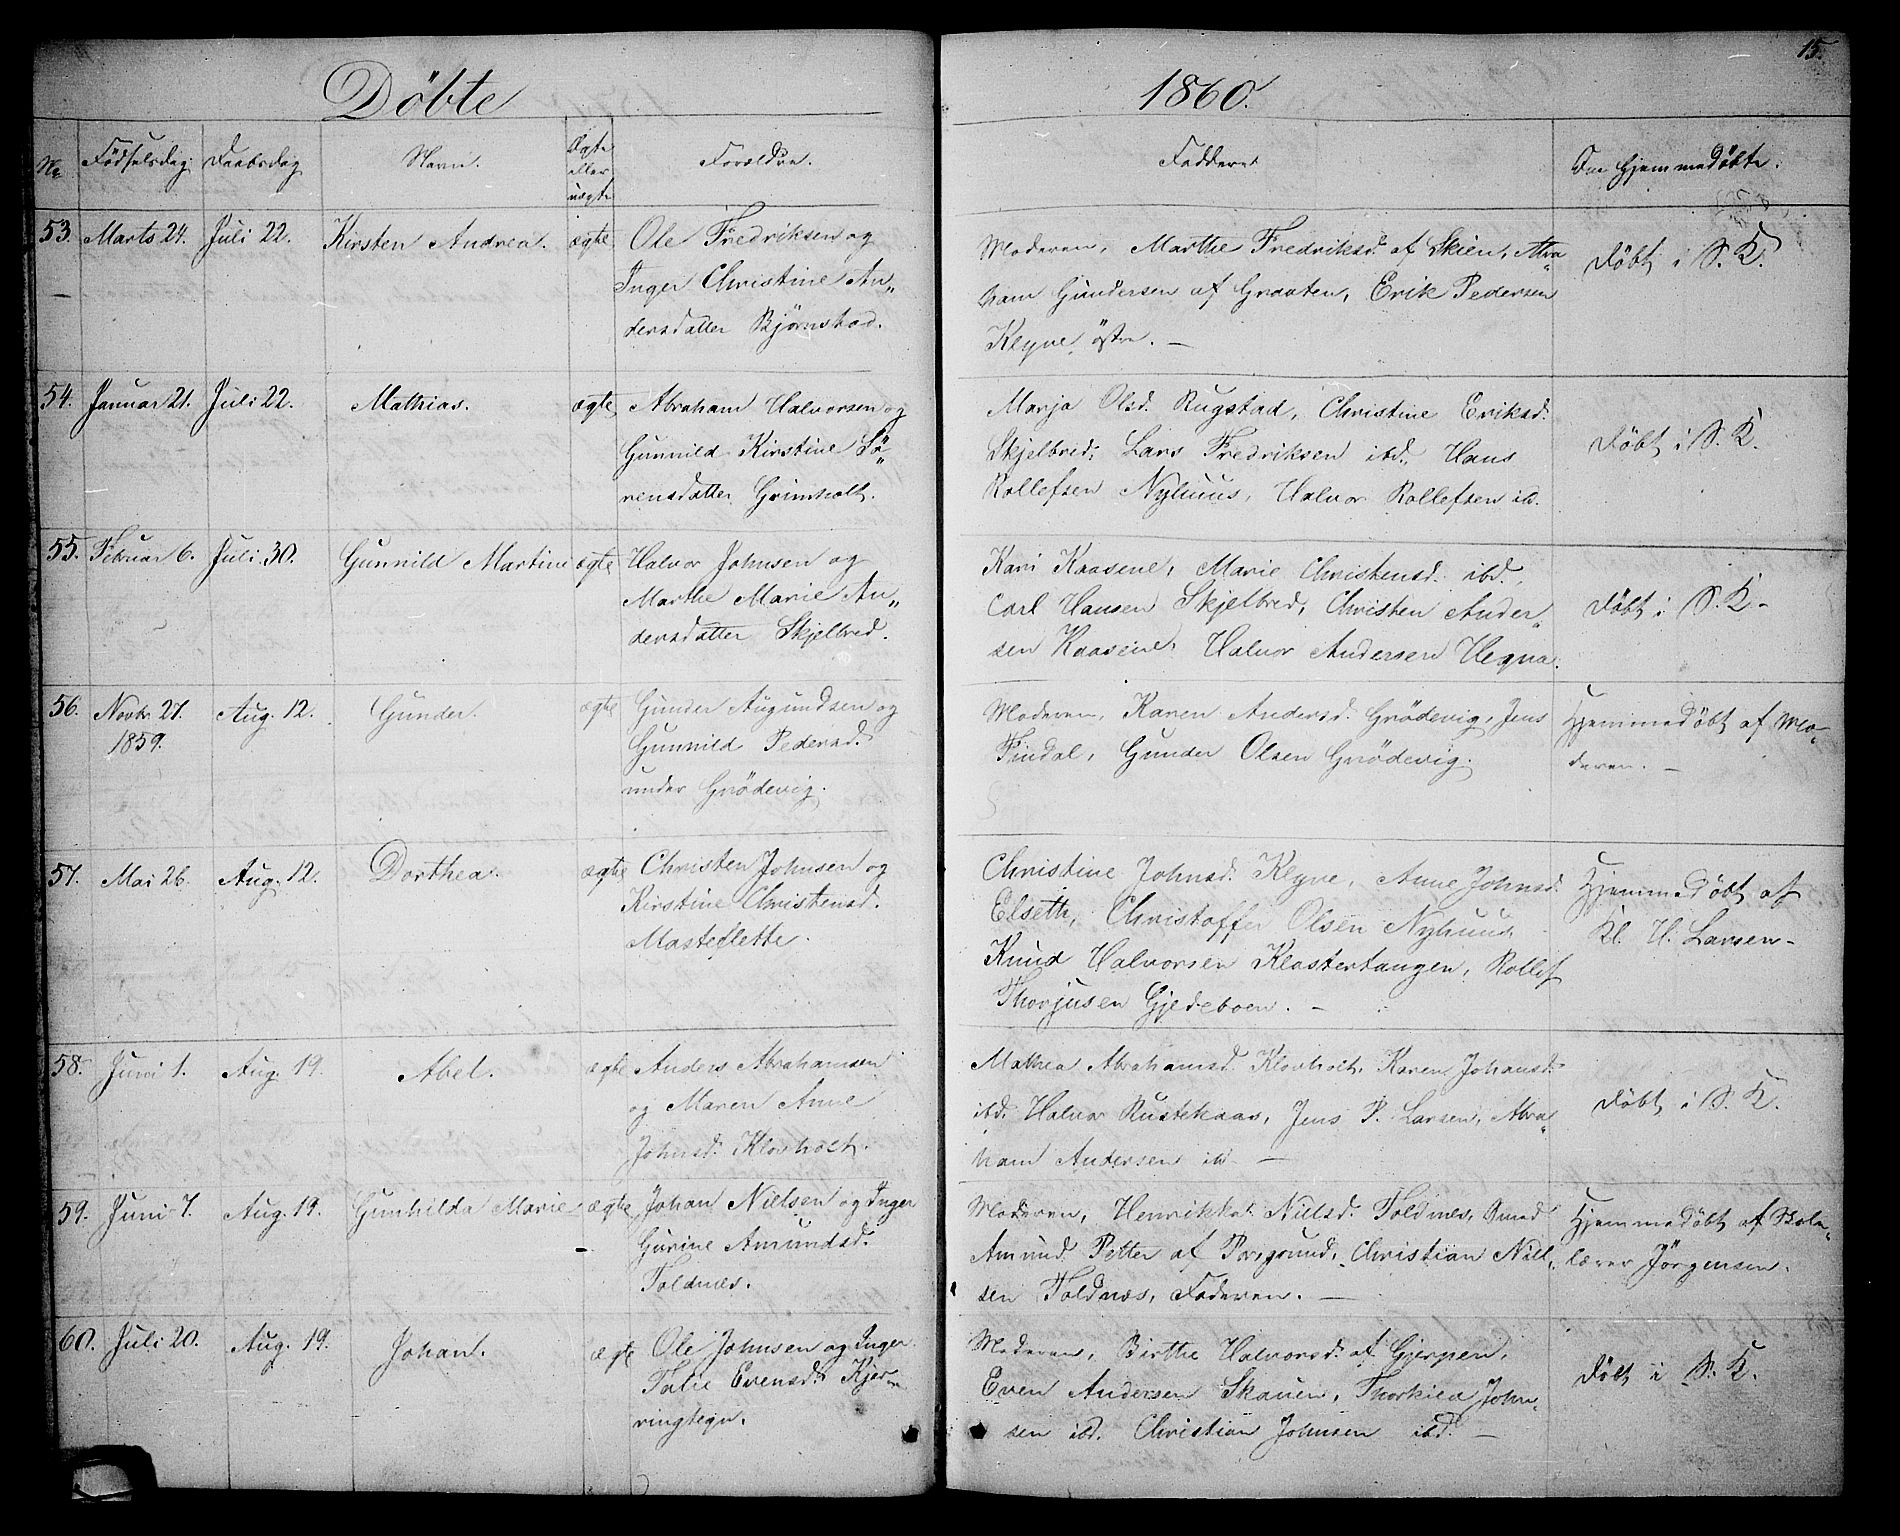 Döbte
1860.
15.
No Födselsdag. Daabsdag Navn. Ægte eller uægte Forældre. Faddere Om Hjemmedöbte.
53. Marts 24. Juli 22. Kirsten Andrea. ægte
Ole Fredriksen og
Inger Christine An„
dersdatter Bjørnstad.
Moderen, Marthe Fredriksd. af Skien, Abra„
ham Gundersen af Graaten, Erik Pedersen
Klyve östre. —
Döbt i S. K.
54. Januar 21. Juli 22. Mathias. ægte
Abraham Halvorsen og
Gunnild Kirstine Sö„
rensdatter Grimholt.
Marja Olsd. Rugstad, Christine Eriksd.
Skjelbred, Lars Fredriksen ibd., Hans
Rollefsen Nyhuus, Halvor Rollefsen ib.
Döbt i S. K.
55. Februar 6. Juli 30. Gunnild Martine ægte
Halvor Johnsen og
Marthe Marie An„
dersdatter Skjelbred.
Kari Kaasene, Marie Christensd. ibd.,
Carl Hansen Skjelbred, Christen Ander„
sen Kaasene, Halvor Andersen Hegna.
Döbt i S. K.
56. Novbr. 27. 1859. Aug. 12. Gunder. ægte
Gunder Augundsen og
Gunnild Pedersd.
under Grödevig.
Moderen, Karen Andersd. Grödevig, Jens
Findal, Gunder Olsen Grödevig.
Hjemmedöbt af Mo„
deren. —
57. Mai 26. Aug. 12. Dorthea. ægte
Christen Johnsen og
Kirstine Christensd.
Masteflette.
Christine Johnsd. Klyve, Anne Johnsd.
Elseth, Christoffer Olsen Nyhuus,
Knud Halvorsen Klostertangen, Rollef
Thorjusen Gjedeboen. —
Hjemmedöbt af
Kl. H. Larsen-
58. Juni 1. Aug. 19. Abel. ægte
Anders Abrahamsen
og Maren Anne
Johnsd. Klovholt.
Mathea Abrahamsd. Klovholt, Karen Johansd.
ibd. Halvor Rustekaas, Jens P. Larsen, Abra„
ham Andersen ib —
Döbt i S. K.
59. Juni 7. Aug. 19. Gunhilda Marie ægte
Johan Nielsen og Inger
Gurine Amundsd.
Toldnæs.
Moderen, Henrikka Nielsd. Toldnes,
Amund Petter af Porsgrund, Christian Niel„
sen Toldnæs, Faderen. —
Hjemmedöbt af Skole„
lærer Jörgensen.
60. Juli 20. Aug. 19. Johan. ægte
Ole Johnsen og Inger
Talie Evensd. Kjer„
ringtegn.
Moderen, Birthe Halvorsd. af Gjerpen,
Even Andersen Skauen, Thorkild John„
sen ibd. Christian Johnsen ibd. —
Döbt i S. K.